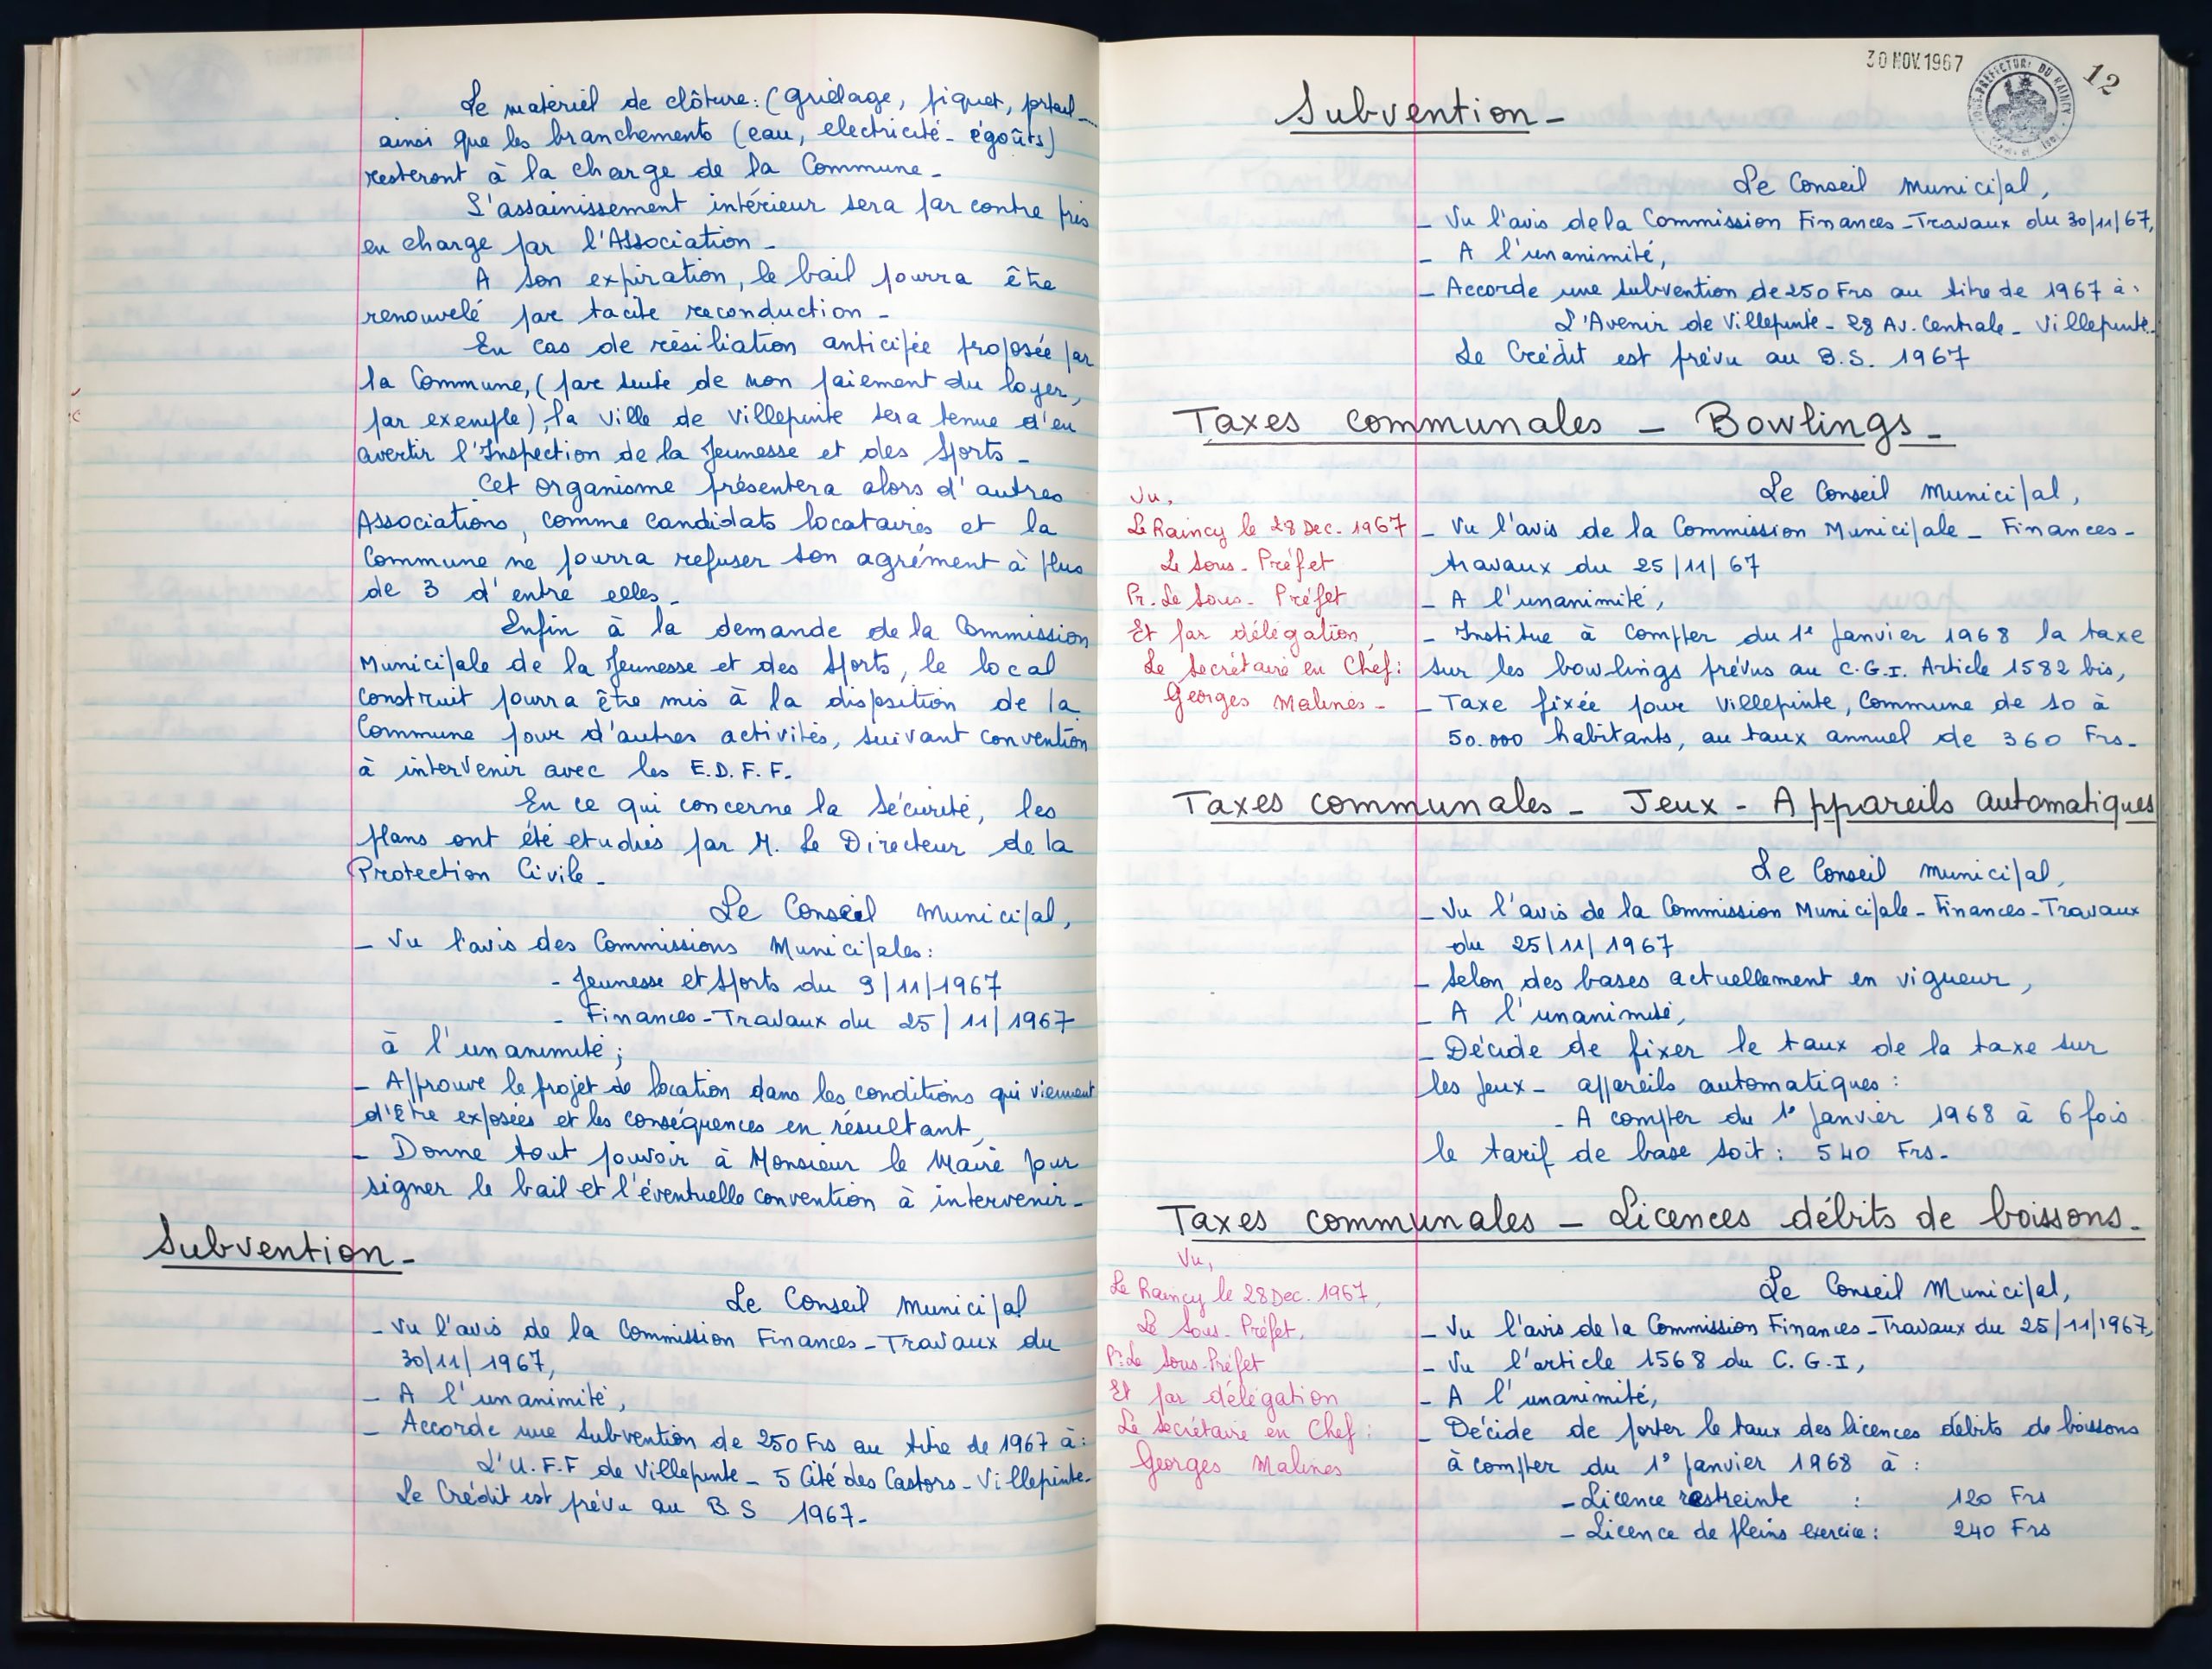 Le matériel de clôture: (grielage, piquet, portail
ainsi que les branchements (eau, electricité - égoûts)
resteront à la charge de la Commune -
L'assainissement intérieur sera par contre pris
en charge par l'Association -
A son expiration, le bail pourra être
renouvelé par tacite reconduction -
En cas de résiliation anticipée proposée par
la Commune, (par suite de non paiement du loyer,
par exemple), la ville de Villepinte sera tenue d'en
avertir l'Inspection de la Jeunesse et des Sports -
Cet organisme présentera alors d'autres
Associations, comme candidats locataires et la
Commune ne pourra refuser son agrément à plus
de 3 d'entre elles -
Enfin à la demande de la Commission
Municipale de la Jeunesse et des Sports, le local
construit pourra être mis à la disposition de la
Commune pour d'autres activités, suivant convention
à intervenir avec les E.D.F.F.
En ce qui concerne la Sécurité, les
plans ont été etudiés par M. Le Directeur de la
Protection Civile -
Le Conseil Municipal,
- Vu l'avis des Commissions Municipales:
- Jeunesse et Sports du 9/11/1967
- Finances - Travaux du 25/11/1967
à l'unanimité;
- Approuve le projet de location dans les conditions qui viennent
d'être exposées et les conséquences en résultant,
- Donne tout pouvoir à Monsieur le Maire pour
signer le bail et l'éventuelle convention à intervenir -
Subvention -
Le Conseil Municipal
- Vu l'avis de la Commission Finances - Travaux du
30/11/1967,
- A l'unanimité,
- Accorde une Subvention de 250 Frs au titre de 1967 à:
L'U.F.F de Villepinte - 5 Cité des Castors - Villepinte -
Le Crédit est prévu au B.S 1967 -
30 NOV. 1967
SOUS-PRÉFECTURE DU RAINCY
12
Subvention -
Le Conseil Municipal,
- Vu l'avis de la Commission Finances - Travaux du 30/11/67,
- A l'unanimité,
- Accorde une subvention de 250 Frs au titre de 1967 à:
L'Avenir de Villepinte - 28 Av. Centrale - Villepinte -
Le Crédit est prévu au B.S. 1967
Taxes communales - Bowlings -
Le Conseil Municipal,
- Vu l'avis de la Commission Municipale - Finances -
travaux du 25/11/67
- A l'unanimité,
- Institue à compter du 1° Janvier 1968 la taxe
sur les bowlings prévus au C.G.I. Article 1582 bis,
- Taxe fixée pour Villepinte, Commune de 10 à
50.000 habitants, au taux annuel de 360 Frs -
Vu,
Le Raincy le 28 Dec. 1967
Le Sous - Préfet
Pr. Le Sous - Préfet
Et par délégation,
Le Secrétaire en Chef:
Georges Malines -
Taxes communales - Jeux - Appareils automatiques
Le Conseil Municipal,
- Vu l'avis de la Commission Municipale - Finances - Travaux
du 25/11/1967
- Selon des bases actuellement en vigueur,
- A l'unanimité,
- Décide de fixer le taux de la taxe sur
les Jeux - appareils automatiques:
- A compter du 1° Janvier 1968 à 6 fois
le tarif de base soit: 540 Frs -
Taxes communales - Licences débits de boissons -
Le Conseil Municipal,
- Vu l'avis de la Commission Finances - Travaux du 25/11/1967,
- Vu l'article 1568 du C.G.I,
- A l'unanimité,
- Décide de porter le taux des licences débits de boissons
à compter du 1° Janvier 1968 à:
- Licence restreinte : 120 Frs
- Licence de pleins exercice: 240 Frs
Vu,
Le Raincy le 28 Dec. 1967,
Le Sous - Préfet,
Pr Le Sous - Préfet
Et par délégation
Le Secrétaire en Chef:
Georges Malines